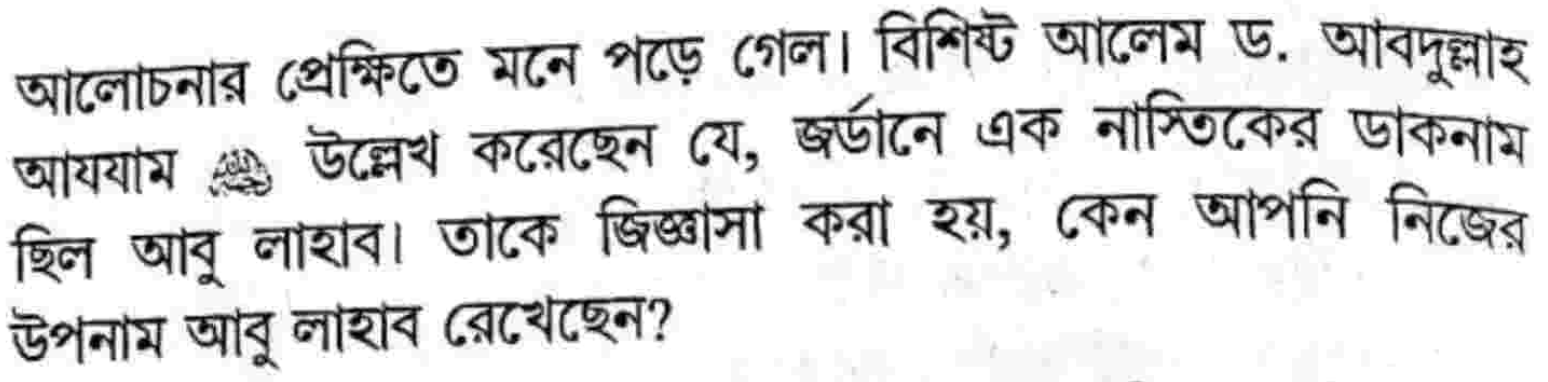 আলোচনার প্রেক্ষিতে মনে পড়ে গেল। বিশিষ্ট আলেম ড. আবদুল্লাহ
আযযাম উল্লেখ করেছেন যে, জর্ডানে এক নাস্তিকের ডাকনাম
ছিল আবু লাহাব। তাকে জিজ্ঞাসা করা হয়, কেন আপনি নিজের
উপনাম আবু লাহাব রেখেছেন?